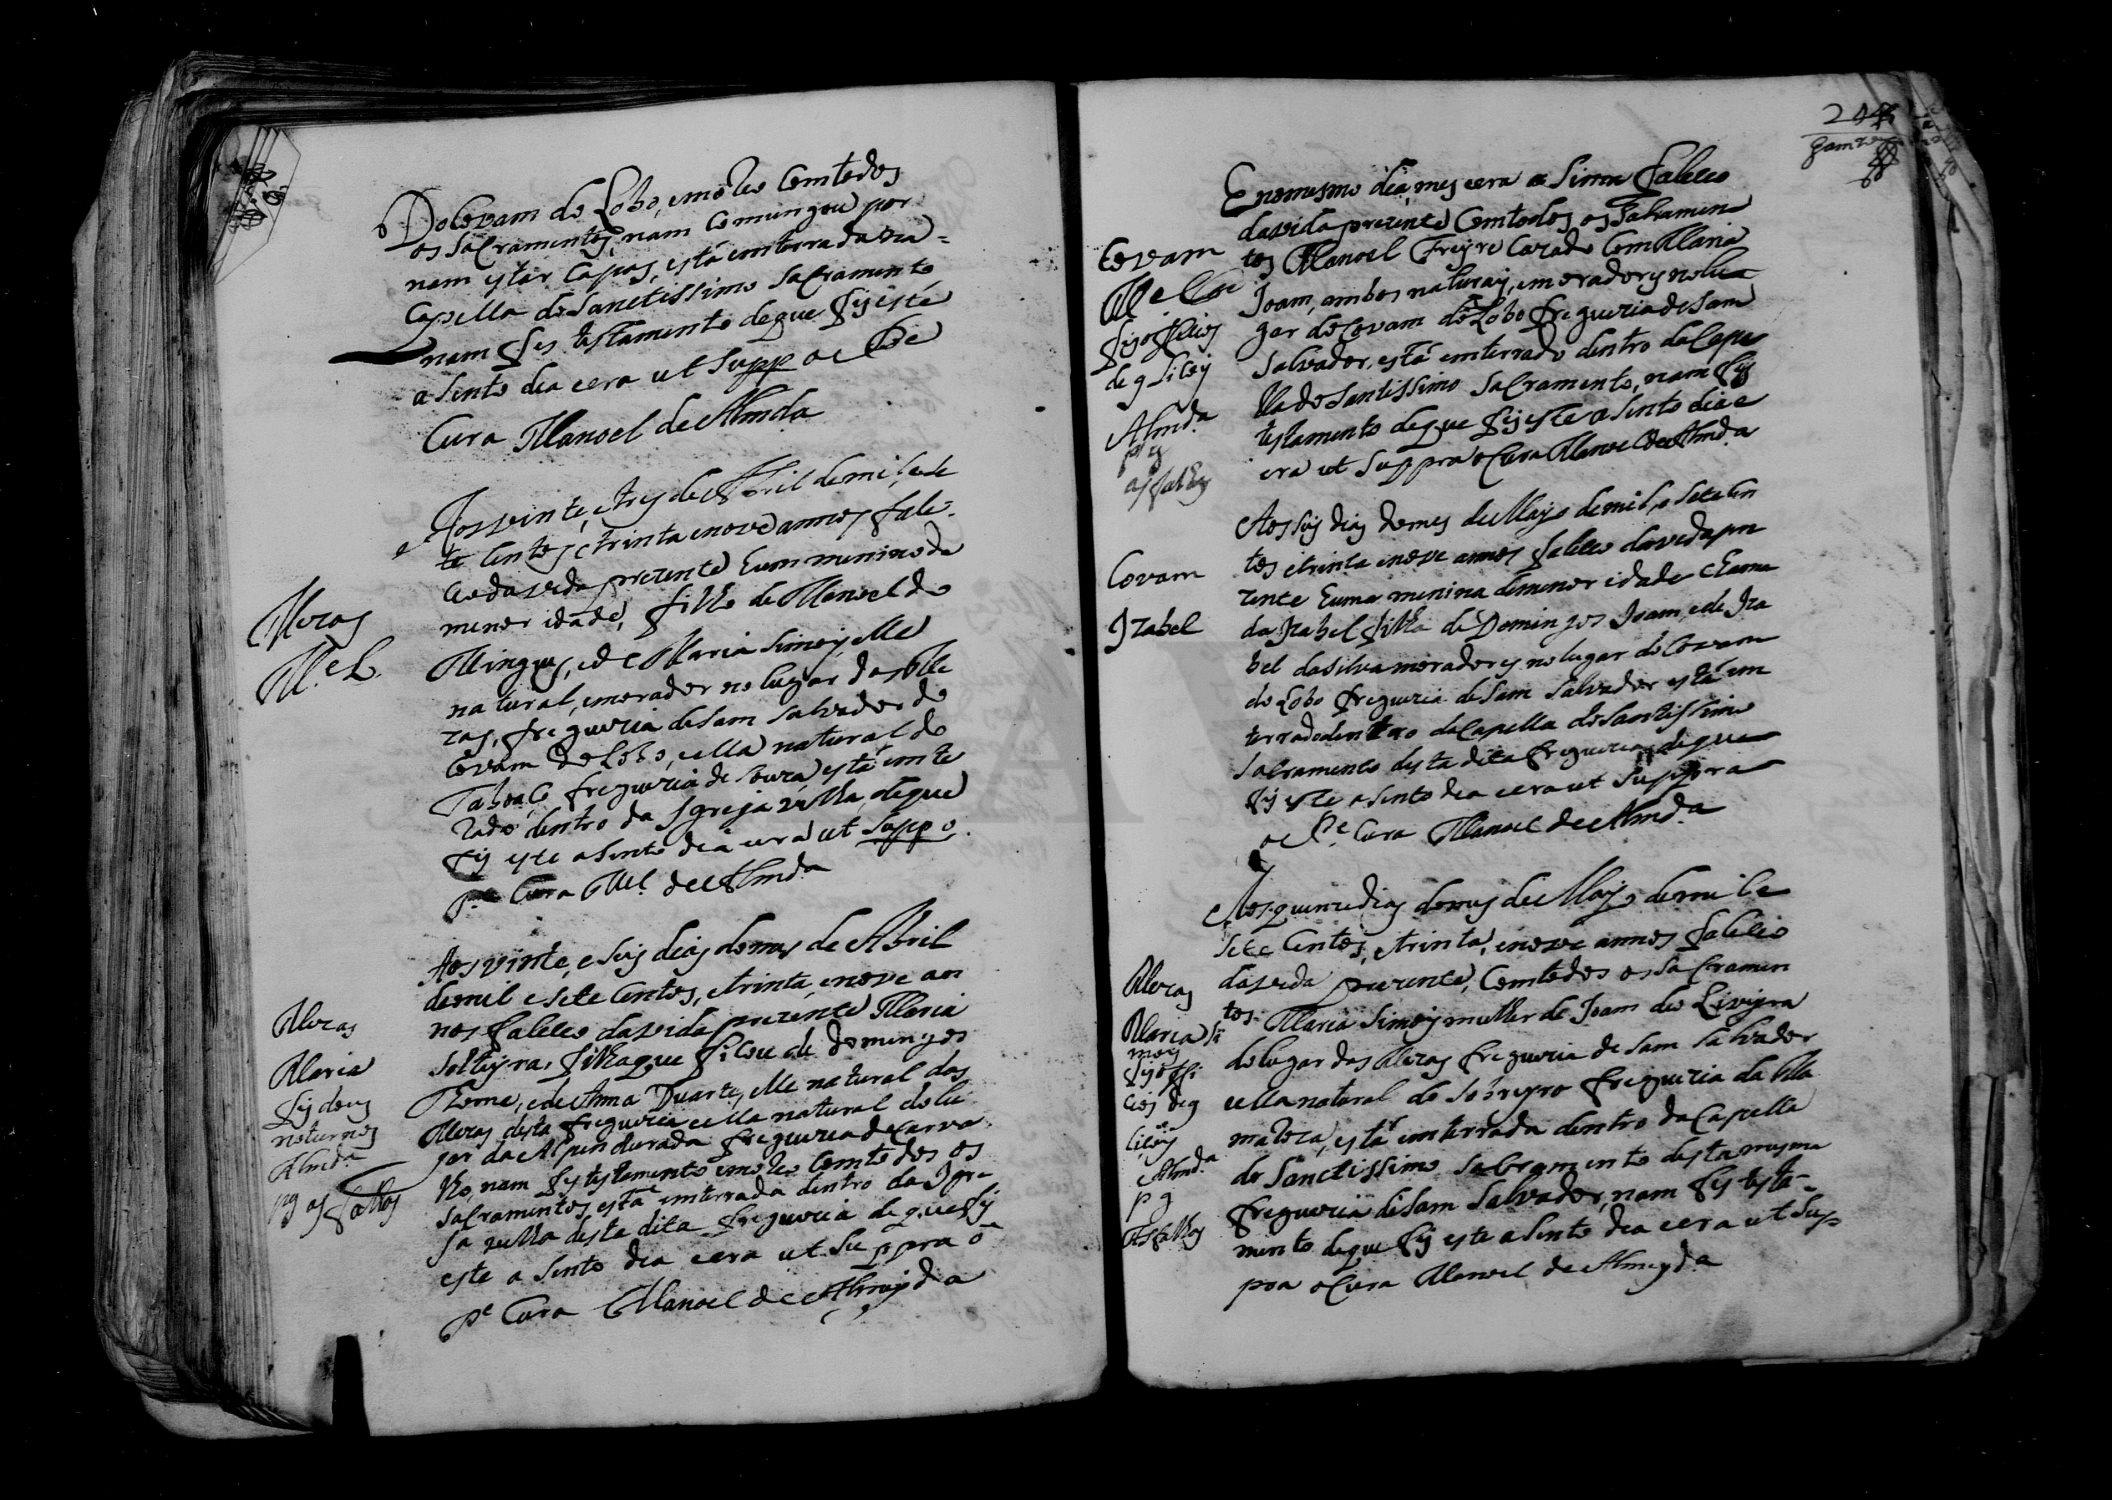 Do Covam do Lobo, morreo Com todos
os Sacramentos, nam Comungou por
nam estar Capas, está emterrada na
Capella do Sanctissimo Sacramento
nam fes testamento de que fis este
asento dia e era ut Supp o Pe
Cura Manoel de Almda
Aos vinte, e tres de Abril de mil, e se
te Centos, e trinta e nove annos fale-
ceo da vida prezente hum menino de
menor idade, filho de Manoel Do
Mingues, e de Maria Simois, elle
natural, e morador no lugar das Me
zas, freguezia de Sam Salvador do
Covam do Lobo, e ella natural do
Taboaço freguezia de Souza está emte
rado dentro da Igreja velha, de que
fis este asento dia e era ut Supp o
Pe Cura Mel. de Almda
Mezas
Mel.
Aos vinte, e seis dias do mes de Abril
de mil e sete Centos, e trinta, e nove an
nos faleceo da vida prezente Maria
Solteyra, filha que ficou de Domingos
Thome, e de Anna Duarte, elle natural das
Mezas desta freguezia e ella natural do lu
gar da Alpendurada freguezia de Carva
lho, nam fes testamento morreo Com todos os
Sacramentos, está emterrada dentro da Igre
ja velha desta dita freguezia de que fis
este asento dia e era ut Suppra o
Pe Cura Manoel de Almeyda
Mezas
Maria
fis dous
noturnos
Almda
pg as falhas
E no mesmo dia, mes e era asima faleceo
da vida prezente Com todos os Sakramen
tos Manoel Freyre Cazado Com Maria
Joam, ambos naturais, e moradores no lu
gar do Covam do Lobo freguezia de Sam
Salvador, está emterrado dentro da Cape
lla do Santissimo Sacramento, nam fes
testamento de que fis este asento dia e
era ut Suppra o Cura Manoel de Almda
Covam
fis officios
de 9 Liçois
Almda
pg
as falhas
Aos seis dias do mes de Mayo de mil, e sete Cen
tos e trinta e nove annos faleceo da vida pre
zente huma menina de menor idade Chama
da Izabel filha de Domingos Joam, e de Iza
bel da Silva moradores no lugar do Covam
do Lobo freguezia de Sam Salvador está em
terrada dentro da Capella do Santissimo
Sacramento desta dita freguezia de que
fis este asento dia e era ut Suppra
o Pe. Cura Manoel de Almda
Covam
Izabel
Aos quinze dias do mes de Mayo de mil e
sete Centos, e trinta, e nove annos faleceo
da vida prezente, Com todos os Sacramen
tos Maria Simois mulher de Joam de Oliveyra
do lugar das Mezas freguezia de Sam Salvador
e ella natural do Sobreyro freguezia da Illa
mateza, está emterrada dentro da Capella
do Sanctissimo Sacramento desta mesma
freguezia de Sam Salvador, nam fes testa-
mento de que fis este asento dia e era ut Sup
pra o Cura Manoel de Almeyda
Mezas
Maria Si
mois
fis offi
cios de 9
liçois
Almda
pg
as falhas